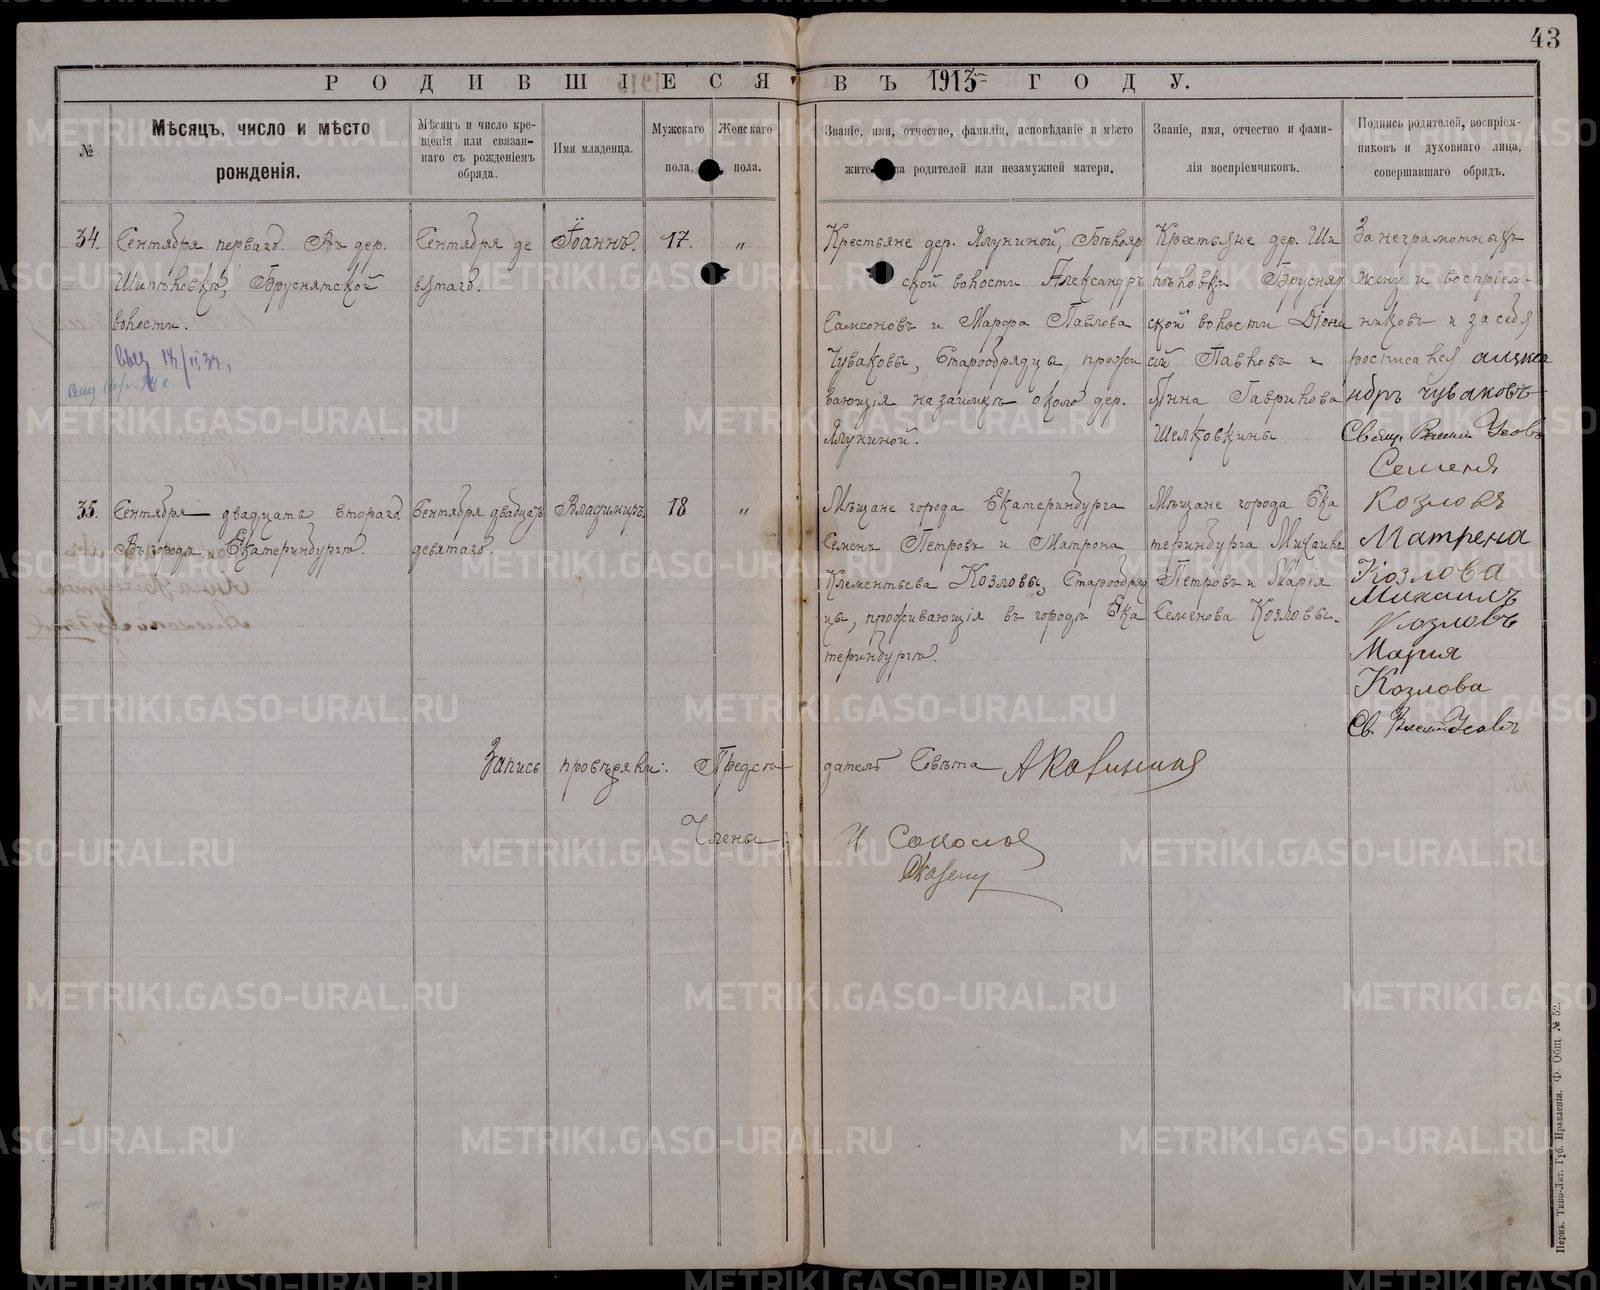 43
РОДИВШІЕСЯ ВЪ 1913 ГОДУ.
№
Мѣсяцъ, число и мѣсто
рожденія.
Мѣсяцъ и число кре-
щенія или связан-
наго съ рожденіемъ
обряда.
Имя младенца.
Мужскаго
пола.
Женскаго
пола.
Званіе, имя, отчество, фамилія, исповѣданіе и мѣсто
жительства родителей или незамужней матери.
Званіе, имя, отчество и фами-
лія воспріемчиковъ.
Подпись родителей, воспріем-
никовъ и духовнаго лица,
совершавшаго обрядъ.
34.
Сентября перваго. Въ дер.
Шипѣловкѣ, Бруснятской
волости.
Сентября де
вятаго.
Іоаннъ.
17.
"
Крестьяне дер. Ялуниной, Бѣлояр
ской волости Александръ
Самсоновъ и Марфа Павлова
Чуваковы, Старообрядцы, прожи
вающія на заимкѣ около дер.
Ялуниной.
Крестьяне дер. Ши
пѣловки Бруснят
ской волости Діони
сій Павловъ и
Анна Гаврилова
Шелковкины
За неграмотныхъ
жену и воспріем-
никовъ и за себя
росписался алекса
ндръ чуваковъ
Свящ. Усовъ
35.
Сентября двадцать втораго.
Въ городѣ Екатеринбургѣ.
Сентября двадцать
девятаго.
Владимиръ.
18
"
Мѣщане города Екатеринбурга
Семенъ Петровъ и Матрона
Клементьева Козловы, Старообряд
цы, проживающія въ городѣ Ека
теринбургѣ.
Мѣщане города Ека
теринбурга Михаилъ
Петровъ и Марія
Семенова Козловы.
Семенъ
Козловъ
Матрена
Козлова
Михаилъ
Козловъ
Мария
Козлова
Св. Усовъ
Запись провѣряли: Предсѣдатель Совѣта
Члены:
Пермь. Типо-Лит. Губ. Правленія. Ф. Общ. № 52.
METRIKI.GASO-URAL.RU